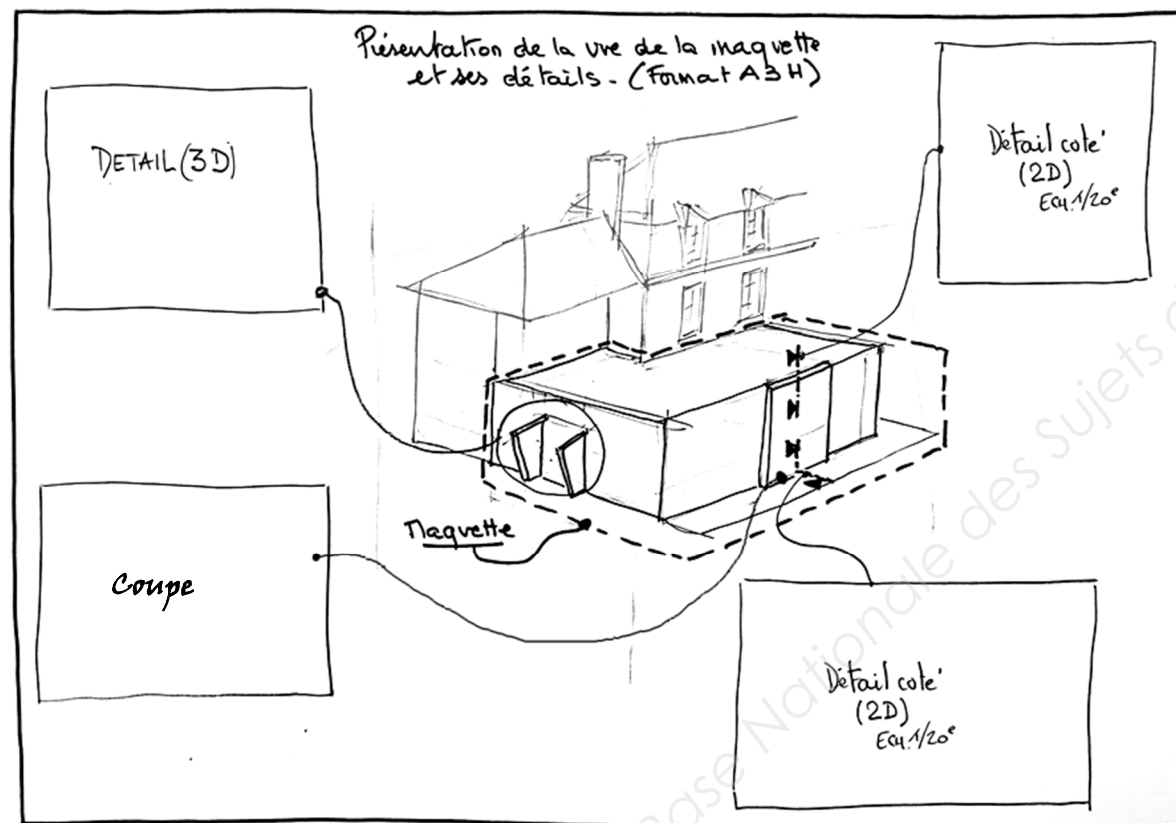 Présentation de la vue de la maquette
et ses détails - (Format A3H)
DETAIL (3D)
Détail coté
(2D)
Ech: 1/20e
Maquette
Coupe
Détail coté
(2D)
Ech: 1/20e
Base Nationale des Sujets d